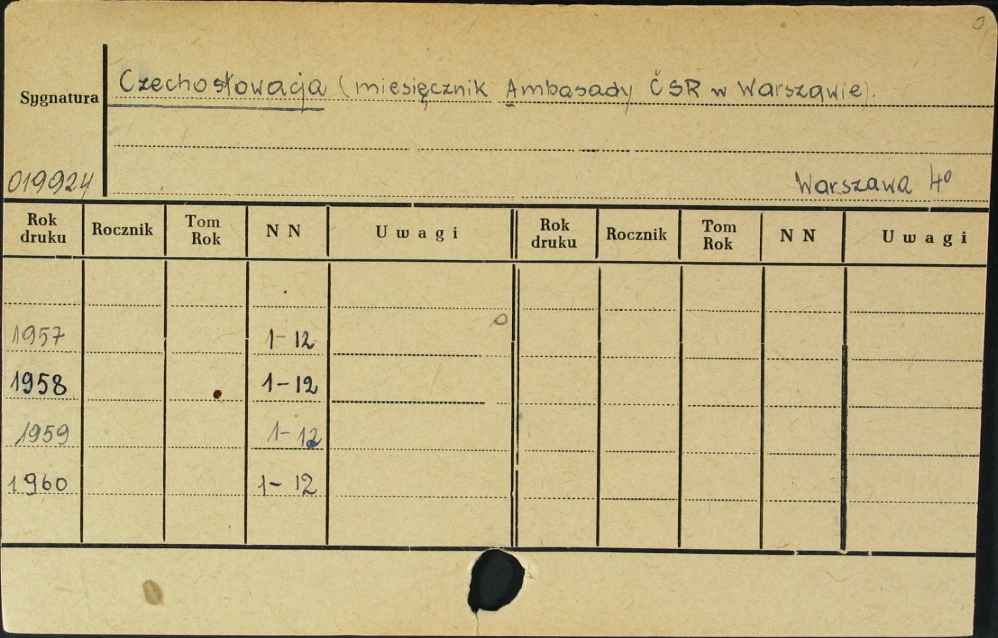 Sygnatura
Czechosłowacja (miesięcznik Ambasady ČSR w Warszawie).
019924
Warszawa 4°
Rok druku Rocznik Tom Rok N N Uwagi Rok druku Rocznik Tom Rok N N Uwagi
1957 1-12
1958 1-12
1959 1-12
1960 1-12